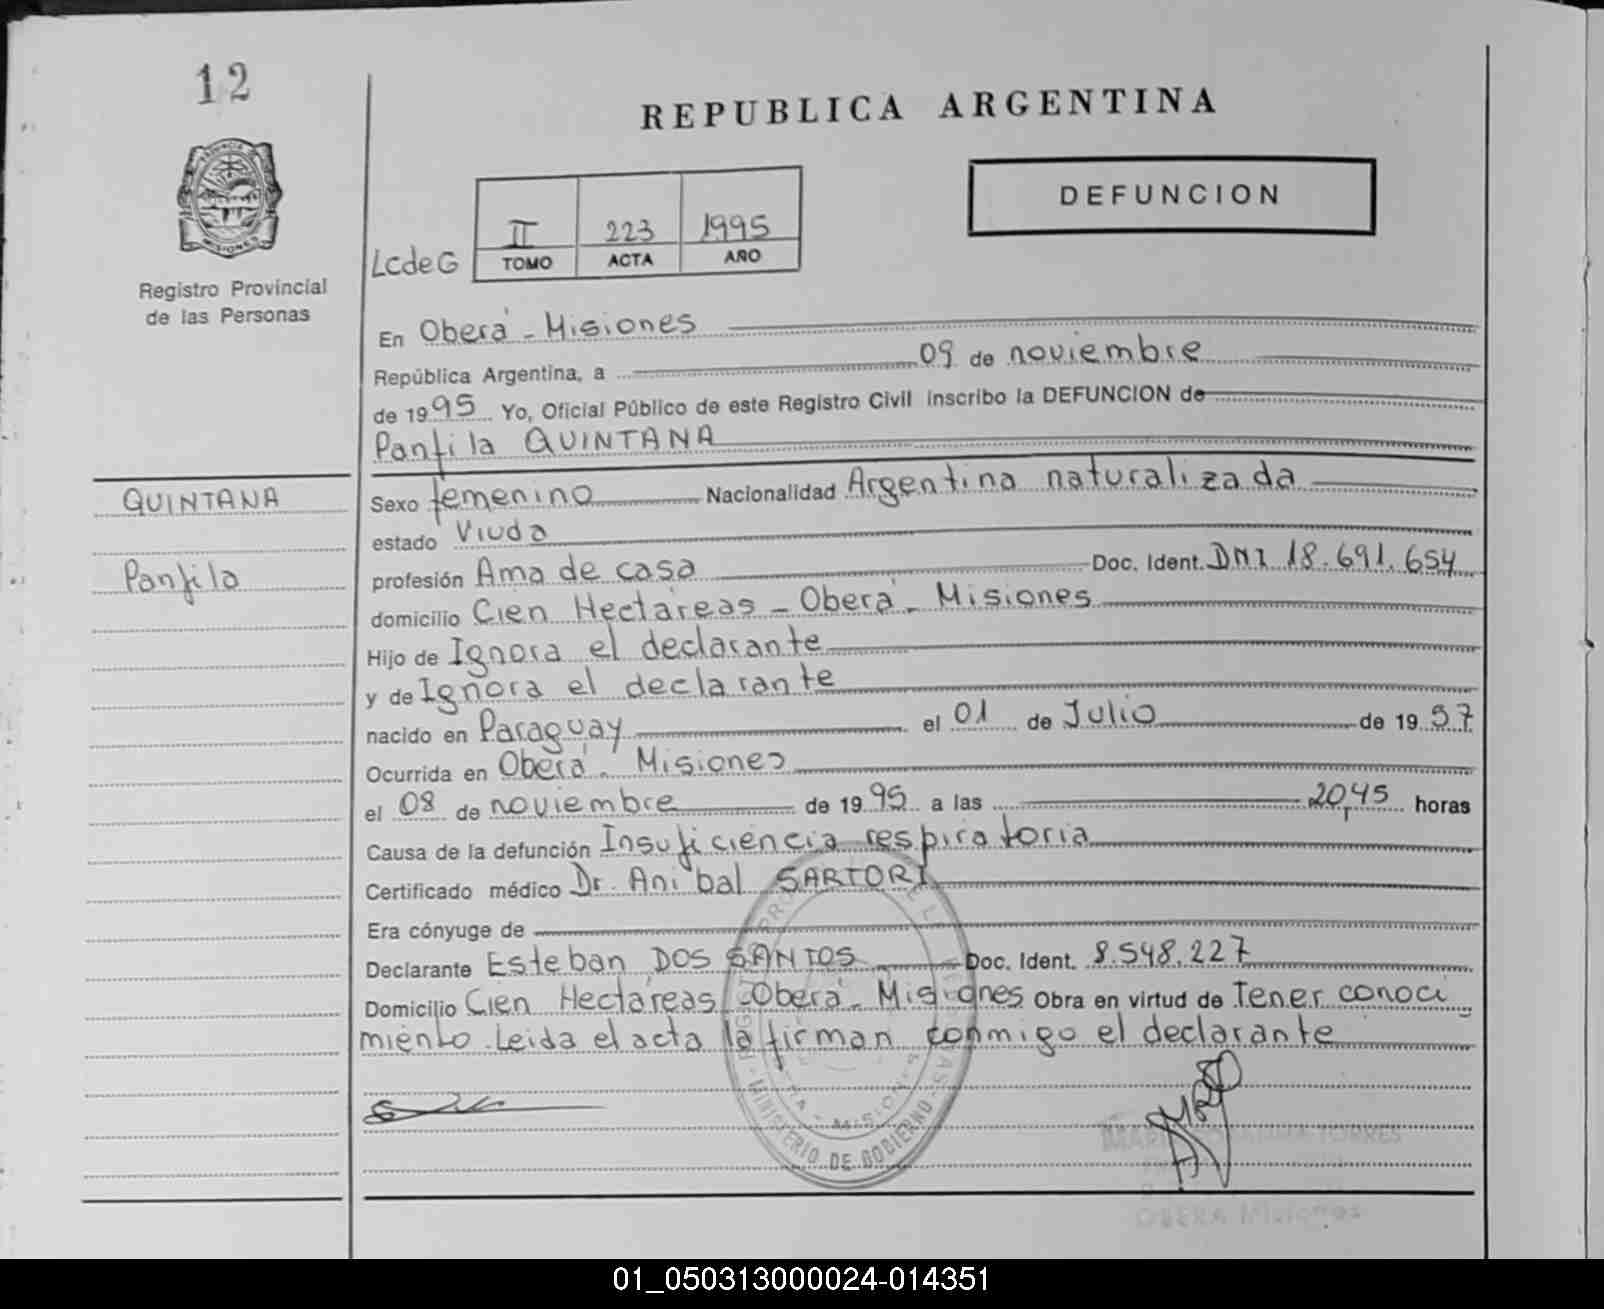 12
REPUBLICA ARGENTINA
DEFUNCION
II 223 1995
LcdeG TOMO ACTA AÑO
PROVINCIA DE MISIONES
Registro Provincial
de las Personas
En Oberá - Misiones
República Argentina, a 09 de noviembre
de 1995 Yo, Oficial Público de este Registro Civil inscribo la DEFUNCION de
Panfila QUINTANA
QUINTANA
Panfila
Sexo femenino Nacionalidad Argentina naturalizada
estado Viuda
profesión Ama de casa Doc. Ident. DNI 18.691.654
domicilio Cien Hectáreas - Oberá - Misiones
Hijo de Ignora el declarante
y de Ignora el declarante
nacido en Paraguay el 01 de Julio de 1937
Ocurrida en Oberá - Misiones
el 08 de noviembre de 1995 a las 20,45 horas
Causa de la defunción Insuficiencia respiratoria
Certificado médico Dr. Aníbal SARTORI
Era cónyuge de
Declarante Esteban DOS SANTOS Doc. Ident. 8.548.227
Domicilio Cien Hectáreas - Oberá - Misiones Obra en virtud de Tener conoci
miento. Leida el acta la firman conmigo el declarante
MINISTERIO DE GOBIERNO
MISIONES
TORRES
OBERA Misiones
01_050313000024-014351